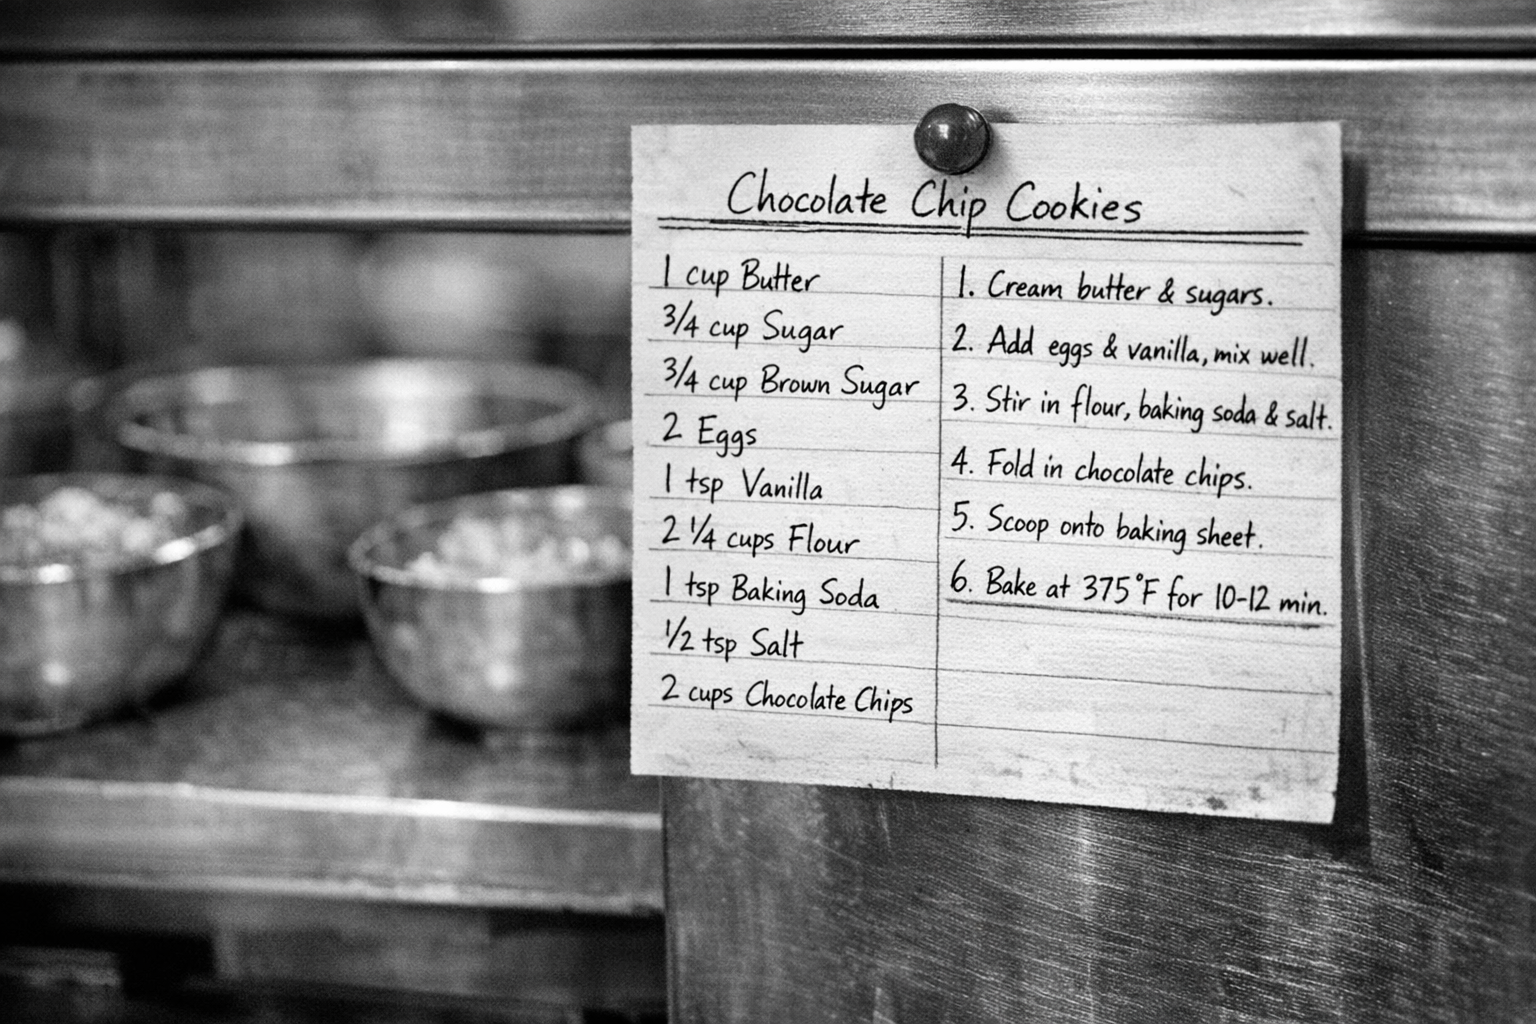 Chocolate Chip Cookies
1 cup Butter
3/4 cup Sugar
3/4 cup Brown Sugar
2 Eggs
1 tsp Vanilla
2 1/4 cups Flour
1 tsp Baking Soda
1/2 tsp Salt
2 cups Chocolate Chips
1. Cream butter & sugars.
2. Add eggs & vanilla, mix well.
3. Stir in flour, baking soda & salt.
4. Fold in chocolate chips.
5. Scoop onto baking sheet.
6. Bake at 375°F for 10-12 min.